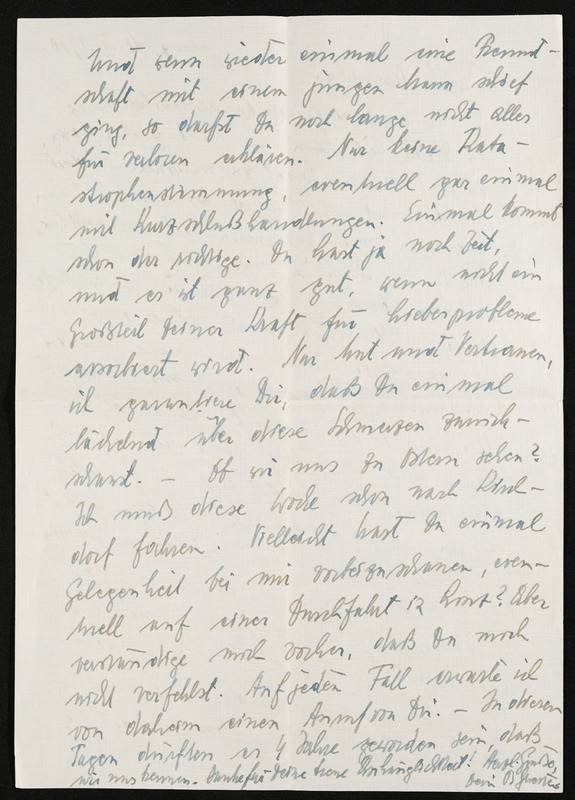 Und wenn wieder einmal eine Freund-
schaft mit einem jungen Mann schief
ging, so darfst Du noch lange nicht alles
für verloren erklären. Nur keine Kata-
strophenstimmung, eventuell gar einmal
mit Kurzschlußhandlungen. Einmal kommt
schon der richtige. Du hast ja noch Zeit,
und es ist ganz gut, wenn nicht ein
Großteil Deiner Kraft für Liebesprobleme
absorbiert wird. Nur Mut und Vertrauen,
ich garantiere Dir, daß Du einmal
lächelnd über diese Schmerzen zurück-
schaust. – Ob wir uns zu Ostern sehen?
Ich muß diese Woche schon nach
dorf fahren. Vielleicht hast Du einmal
Gelegenheit bei mir vorbeizuschauen, even-
tuell auf einer Durchfahrt in ? Aber
verständige mich vorher, daß Du mich
nicht verfehlst. Auf jeden Fall erwarte ich
von daheim einen Anruf von Dir. – In diesen
Tagen dürften es 4 Jahre geworden sein, daß
wir uns kennen. Danke für Deine treue Anhänglichkeit! Herzl. Grüße,
Dein